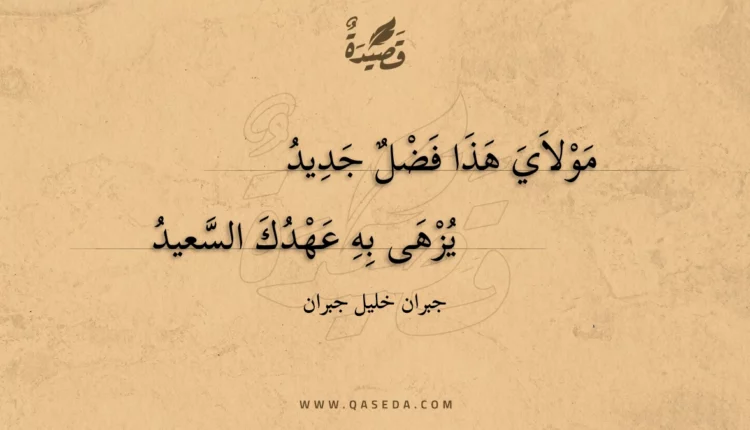 قَصِيْدَةٌ
مَوْلاَيَ هَذَا فَضْلٌ جَدِيدُ
يُزْهَى بِهِ عَهْدُكَ السَّعيدُ
جبران خليل جبران
WWW.QASEDA.COM